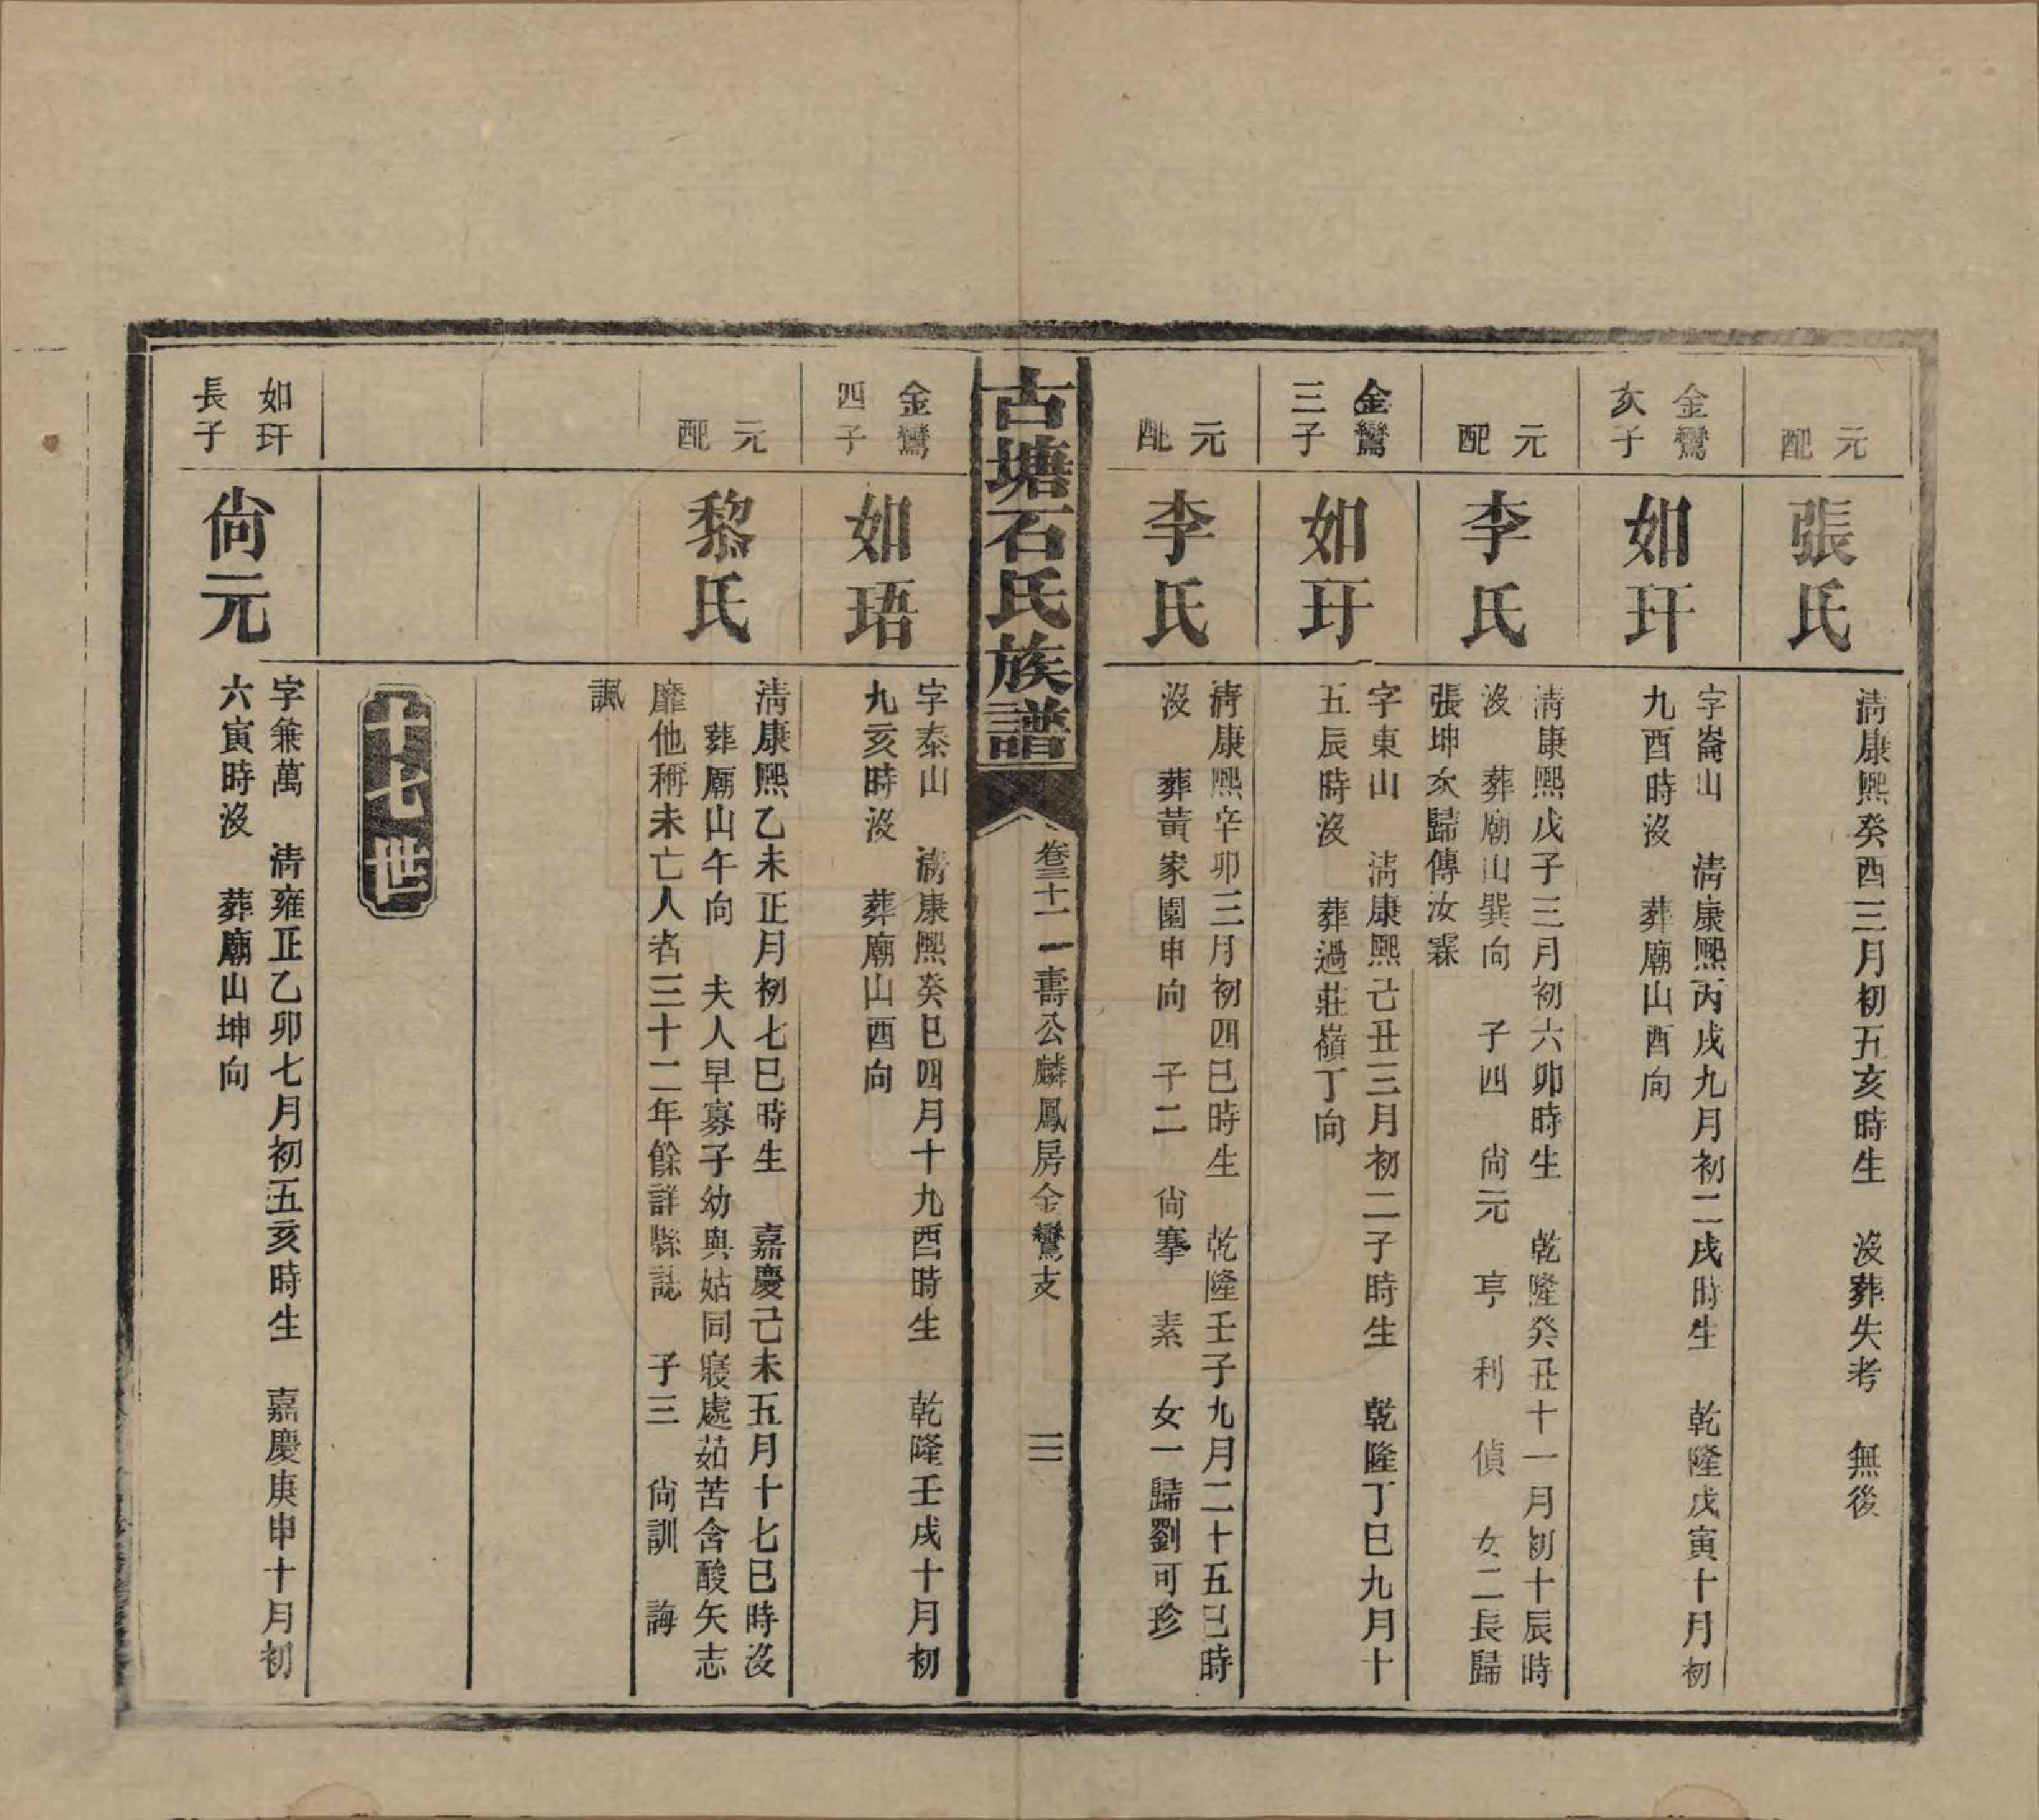 元配
張氏
淸康熙癸酉三月初五亥時生　沒葬失考　無後
金鸞次子
如玕
字崙山　淸康熙丙戌九月初二戌時生　乾隆戊寅十月初
九酉時沒　葬廟山酉向
元配
李氏
淸康熙戊子三月初六卯時生　乾隆癸丑十一月初十辰時
沒　葬廟山巽向　子四　尙元　亨　利　偵　女二長歸
張坤次歸傳汝霖
金鸞三子
如玗
字東山　淸康熙己丑三月初二子時生　乾隆丁巳九月十
五辰時沒　葬過莊嶺丁向
元配
李氏
淸康熙辛卯三月初四巳時生　乾隆壬子九月二十五巳時
沒　葬黃家園申向　子二　尙搴　素　女一歸劉可珍
古塘石氏族譜
卷三十一　壽公麟鳳房金鸞支
三
金鸞四子
如珸
字泰山　淸康熙癸巳四月十九酉時生　乾隆壬戌十月初
九亥時沒　葬廟山酉向
元配
黎氏
淸康熙乙未正月初七巳時生　嘉慶己未五月十七巳時沒
葬廟山午向　夫人早寡子幼與姑同寢處茹苦含酸矢志
靡他稱未亡人者三十二年餘詳縣誌　子三　尙訓　誨
諷
十七世
如玕長子
尙元
字兼萬　淸雍正乙卯七月初五亥時生　嘉慶庚申十月初
六寅時沒　葬廟山坤向